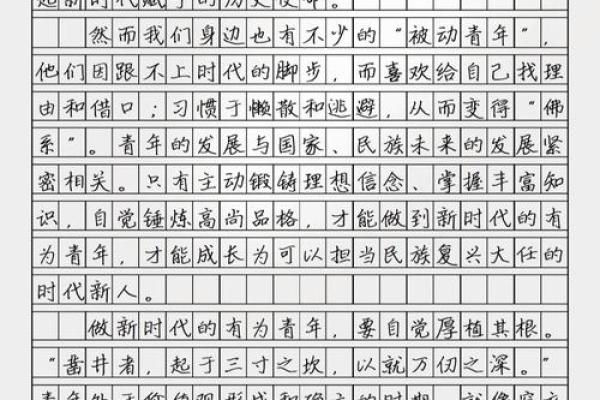 起新时代赋予的历史使命。
然而我们身边也有不少的“被动青年”，
他们因跟不上时代的脚步，而喜欢给自己找理
由和借口；习惯于懒散和逃避，从而变得“佛
系”。青年的发展与国家、民族未来的发展紧
密相关。只有主动锻铸理想信念、掌握丰富知
识，自觉锤炼高尚品格，才能做到新时代的有
为青年，才能成长为可以担当民族复兴大任的
时代新人。
做新时代的有为青年，要自觉厚植其根。
“凿井者，起于三寸之坎，以就万仞之深。”
青年处于价值观形成和确立的时期，就像穿衣